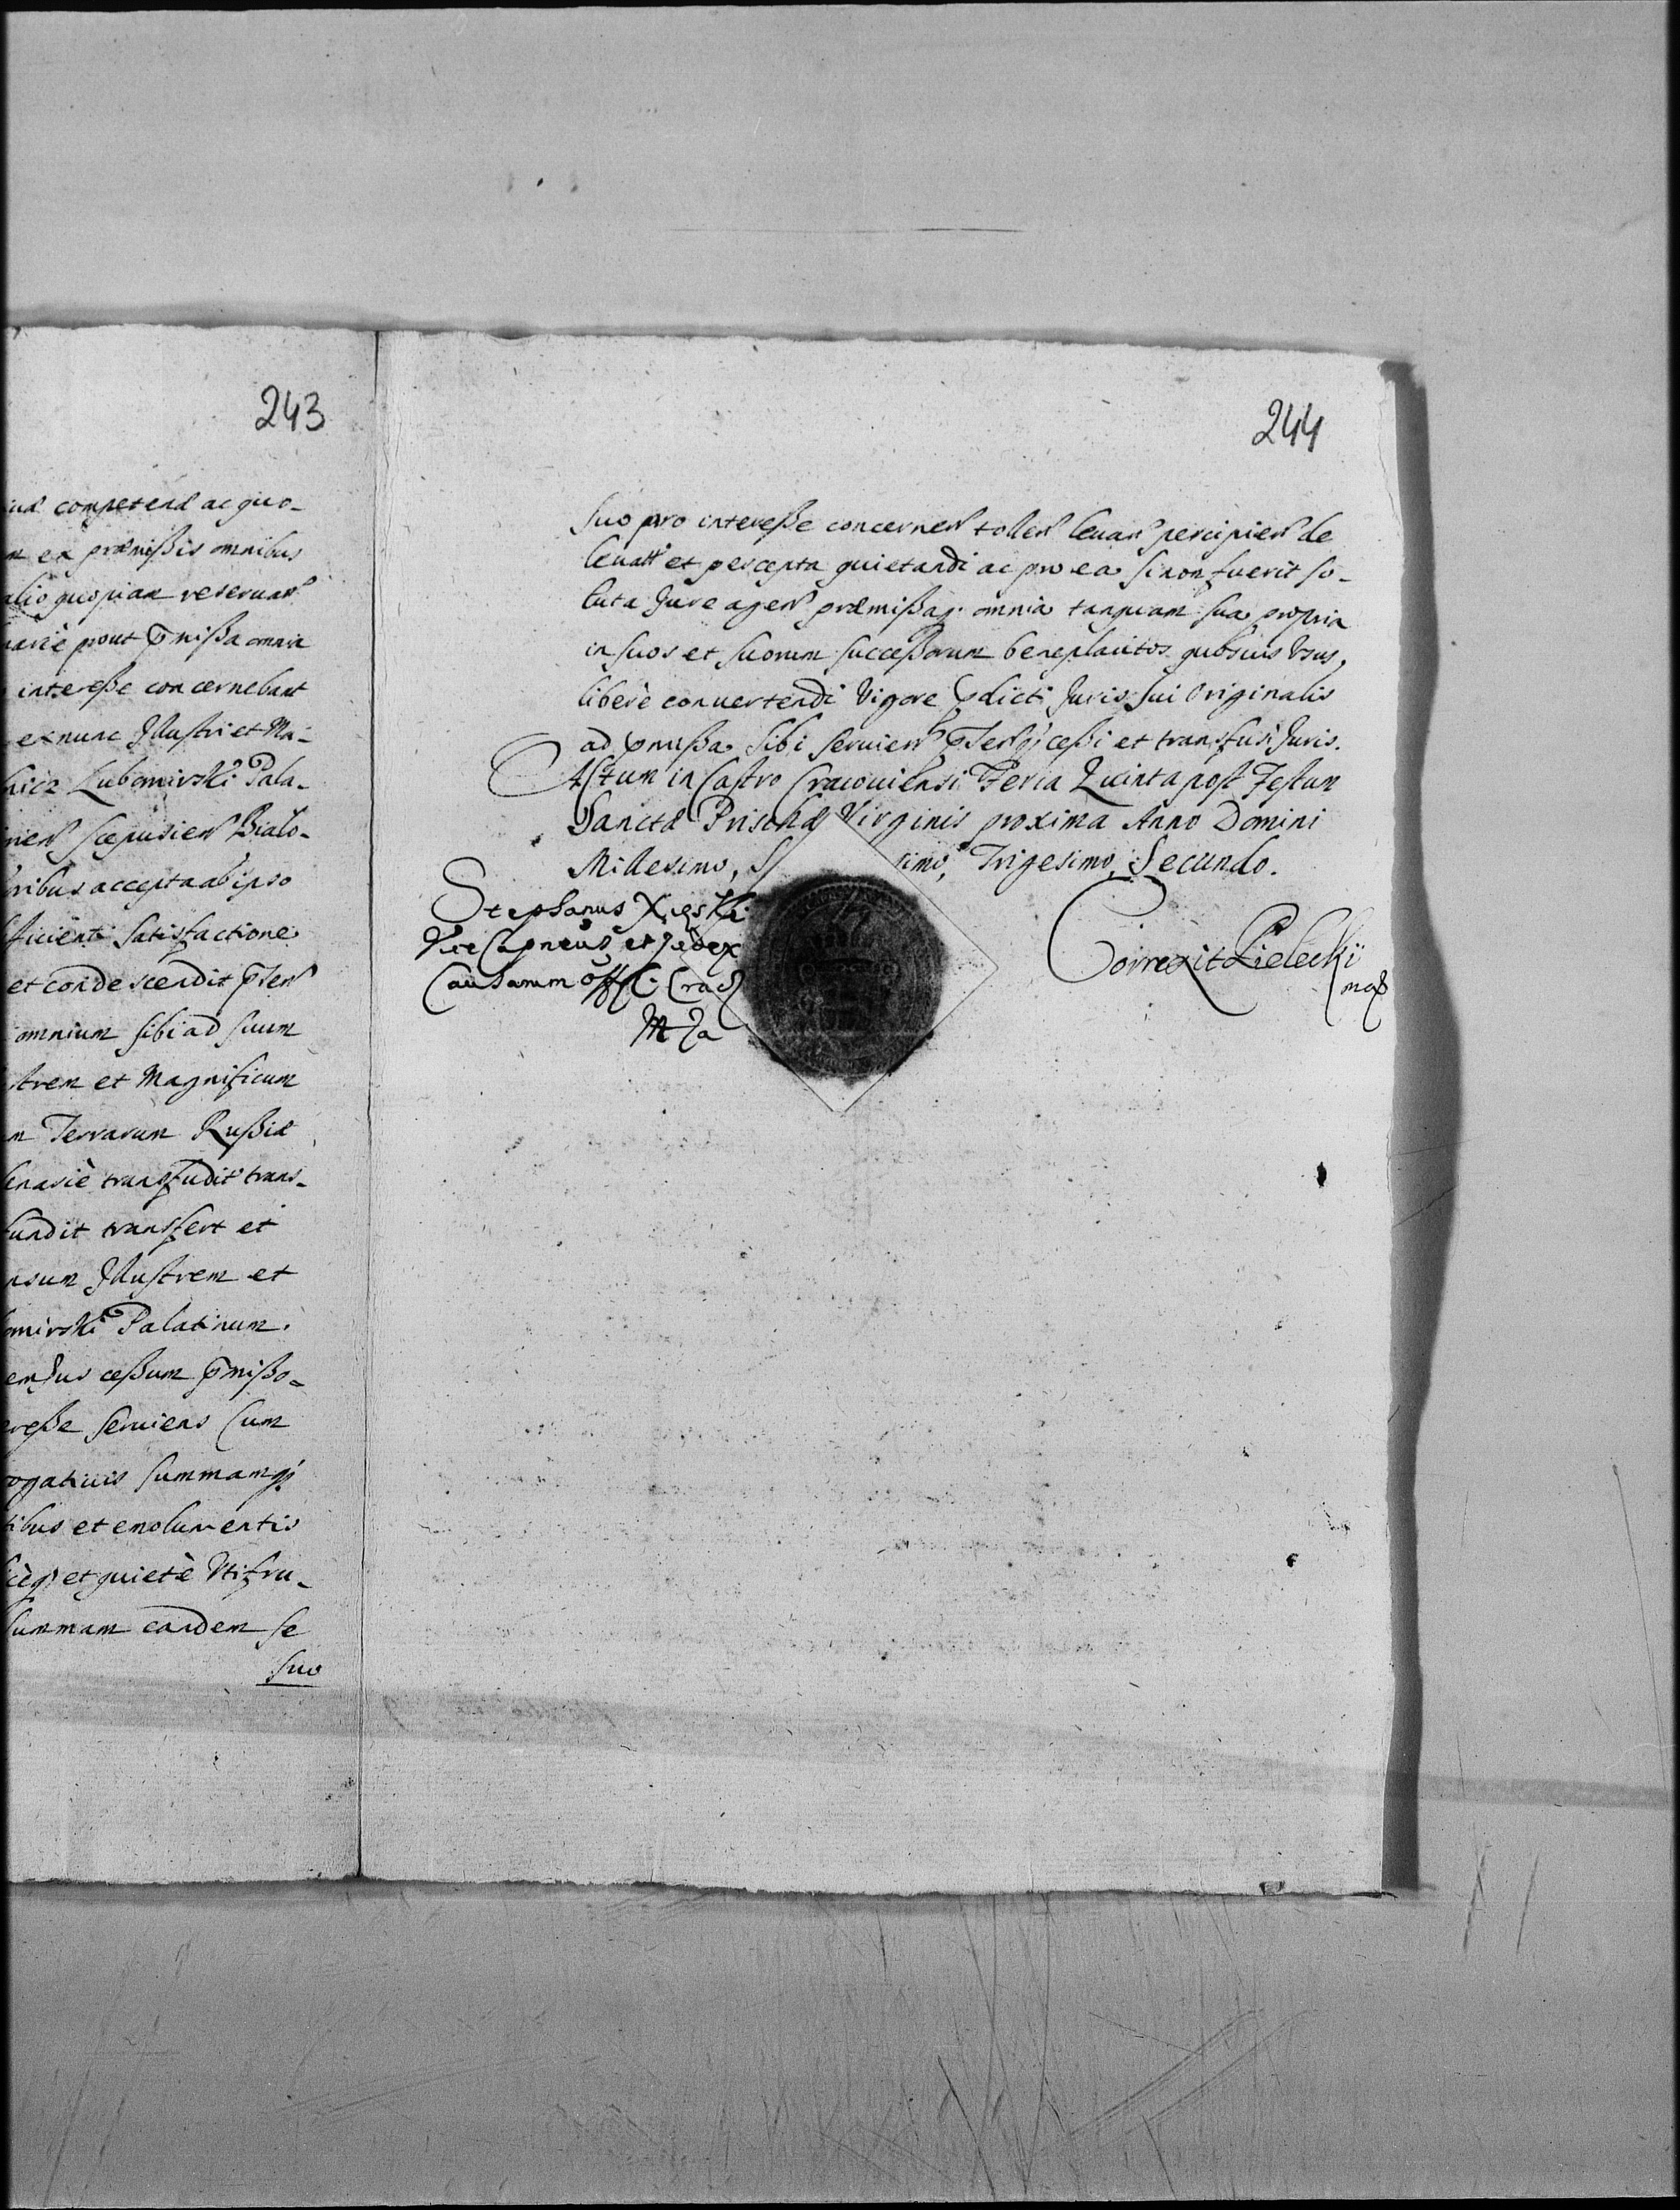 243
competend ac quo-
ex præmißis omnibus
quopiam reseruan
prout pmißa omnia
intereße concernebant
exnunc Jllustri et Ma-
Lubomirski Pala-
scepusien Bialo-
accepta ab ipso
satisfactione
et condescendit pnen
omnium sibi ad suum
et Magnificum
Terrarum Rußiæ
transfudit trans-
transfert et
Jllustrem et
Palatinum.
ceßum pmißo-
seruiens Cum
summamq
et emolumentis
et quietè Vtifru-
summam eandem se
suo
244
suo pro intereße concernen tollen leuan percipien de
leuatt et percepta quietandi ac pro ea si non fuerit so-
luta Jure agen præmißaq omnia tanquam sua propria
in suos et suorum succeßorum beneplacitos qubsuis Vsus,
liberè conuertendi Vigore pdicti Juris sui Originalis
ad pmißa sibi seruien pnerq ceßi et transfusi Juris.
Actum in Castro Cracouiensi Feria Quinta post Festum
Sanctæ Priscæ Virginis proxima Anno Domini
Millesimo, S simo, Trigesimo, Secundo.
Stephanus
Vice Capneus et Judex
Causarum Offi Crac
Correxit Pielecki